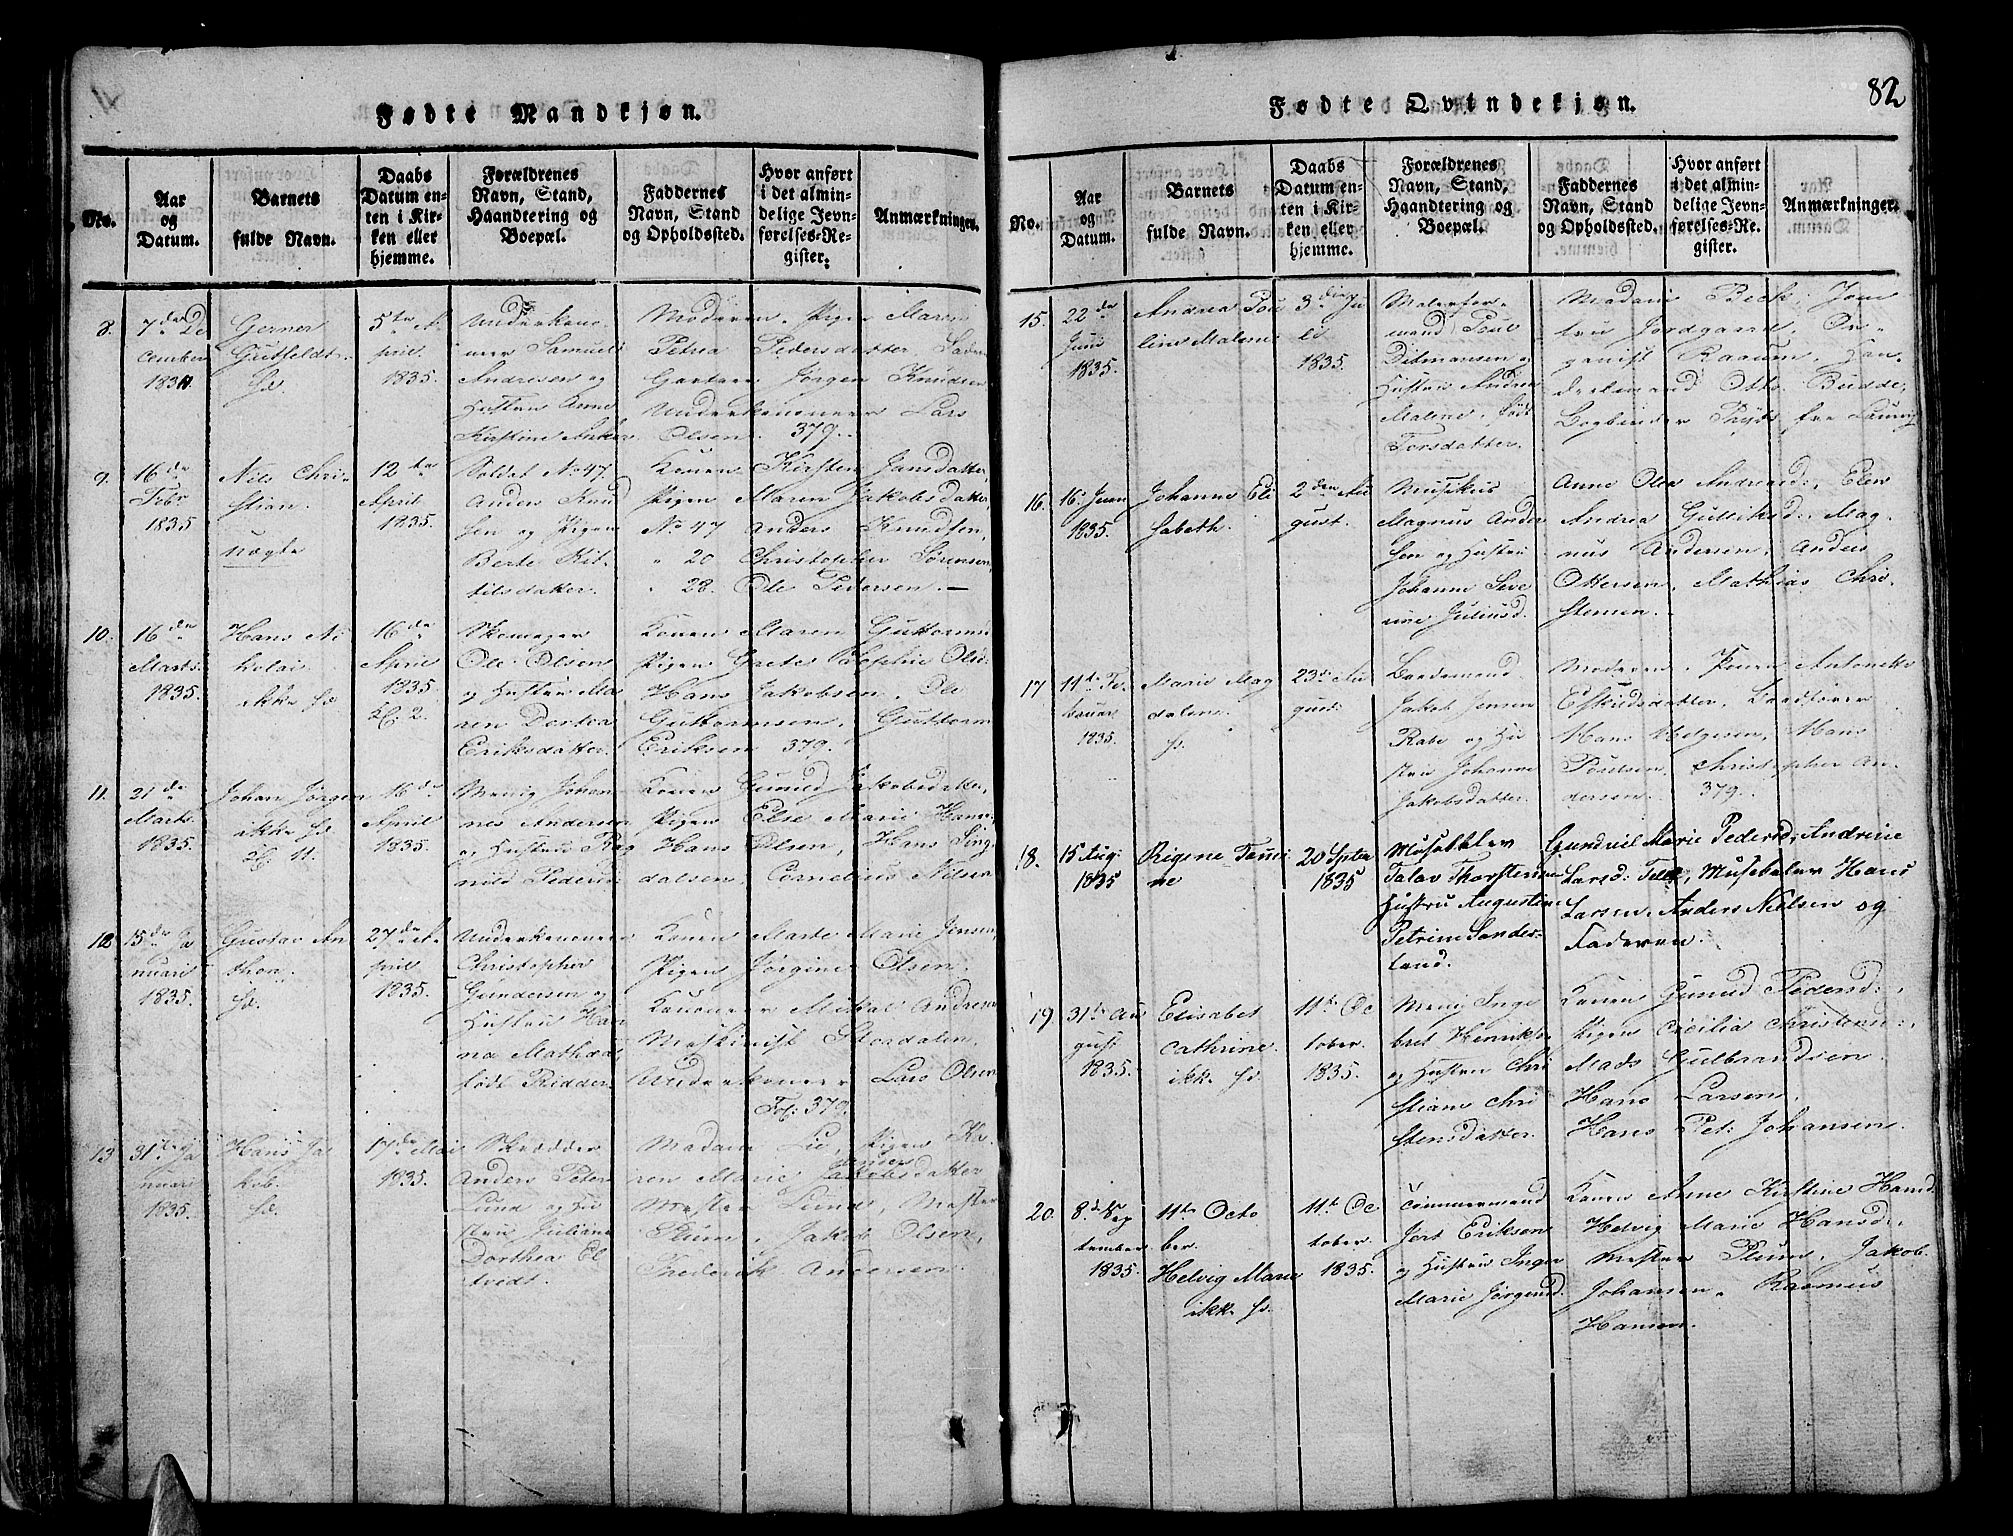 Fødte Mandkjøn.
No.
Aar
og
Datum.
Barnets
fulde Navn.
Daabs
Datum en-
ten i Kir-
ken eller
hjemme.
Forældrenes
Navn, Stand,
Haandtering og
Boepæl.
Faddernes
Navn, Stand
og Opholdssted.
Hvor anført
i det almin-
delige Jevn-
førelses-Re-
gister.
Anmærkninger.
8.
7de De
cember
1834
Gerner
Gutfeldt
5te A
pril
1835.
Underkano-
neer Samuel
Andresen og
Hustru Anne
Kirstine Ander
Moderen, Pigen Maren
Petrea Pedersdatter,
Gartner Jørgen Knudsen
Underkanoneer Lars
Olsen. 379.
9.
16de
Febr
1835
Nils Chri-
stian.
uægte
12te
April
1835.
Soldat No 47
Anders Knud
sen og Pigen
Berte Kit-
tilsdatter.
Konen Kirsten Jansdatter,
Pigen Maren Jakobsdatter,
No 47 Anders Knudsen,
" 20 Christopher Sørensen,
" 28. Ole Pedersen. —
10.
16de
Marts
1835.
Hans Ni
kolai.
ikke
16de
April
1835
Kl. 2.
Skomager
Ole Olsen
og Hustru Ma
ren Dortea
Eriksdatter
Konen Maren Guttorms
Pigen Grete Sophie Ols
Hans Jakobsen, Ole
Guttormsen, Guttorm
Eriksen 379.
11.
21de
Marts
1835.
Johan Jørgen
ikke
Kl. 11.
16de
April
1835.
Menig Johan
nes Andersen
og Hustrue Rag
nild Peders
Konen Gunild Jakobsdatter,
Pigen Else Marie Hans
Hans Olsen, Hans Sing
dalsen, Cornelius Nilsen
12
15de Ja
nuari
1835.
Gustav An
thon.
27de A
pril
1835.
Underkanoneer
Christopher
Gundersen og
Hustru Han
na Mathea
født Ridder
Konen Marte Marie Jensen,
Pigen Jørgine Olsen.
Kanoneer Mikal Andresen
Maskinist Stordalen,
Underkaneer Lars Olsen
Fol: 379.
13
31te Ja
nuari
1835.
Hans Ja
kob.
17de Mai
1835.
Skrædder
Anders Peter
Lund og Hu
stru Juliane
Dorthea El
tvedt.
Madam Lie, Pigen Ka
ren Marie Jakobsdatter
Mester Lund, Mester
Plum, Jakob Olsen,
Frederik Andersen.
Fødte Qvindekjøn.
82
No.
Aar
og
Datum.
Barnets
fulde Navn.
Daabs
Datum en-
ten i Kir-
ken eller
hjemme.
Forældrenes
Navn, Stand,
Haandtering og
Boepæl.
Faddernes
Navn, Stand
og Opholdssted.
Hvor anført
i det almin-
delige Jevn-
førelses-Re-
gister.
Anmærkninger.
15.
22de
Juni
1835.
Andrea Pou
line Malene
3die Ju
li
1835.
Malerfor-
mand Poul
Ditmansen og
Hustru Andrea
Malene, født
Torsdatter.
Madam Beck, Jom
fru Jordgaard, Or-
ganist Raaum, Han-
delsmand Otto Budde,
Bogbinder Thybo fra Laurvig
16.
16. Juni
1835.
Johanne Eli
sabeth.
2den Au
gust.
Musikus
Magnus Ander
sen og Hustru
Johanne Seve
rine Juliusd.
Anne Olea Andreasd:, Elen
Andrea Gulliksd: Mag-
nus Andersen, Anders
Ottersen, Mathias Chri-
stensen.
17
11te Fe
bruar
1835.
Marie Mag
dalene.
23de Au
gust.
Jakob Jensen
Rabe og Hu
stru Johanne
Jakobsdatter.
Moderen, Konen Antonette
Eskildsdatter,
Hans Helgesen, Hans
Poulsen, Christopher An-
dersen. 379.
18.
15 Aug:
1835
Rigene Tomi
ne
20 Spter
1835
Musketeer
Talav Thorstensen
Hustru Augustine
Petrine Sonder-
land.
Gundvil Marie Pedersd, Andrine
Larsd: Musketeer Hans
Larsen, Anders Nielsen og
Faderen.
19
31te Au
gust
1835.
Elisabet
Cathrine.
ikke
11te Oc
tober.
1835.
Menig Inge
bret Henriks
og Hustru Chri
stiane Chri
stensdatter.
Konen Gunild Pedersd:,
Pigen Cecilia Christens:,
Mads Gulbrandsen
Hans Larsen,
Hans Pet. Johansen
20
8de Sep
tember
1835.
11te Octo
ber.
Helvig Marie
ikke
11te Oc
tober.
1835.
Tømmermand
Jort Eriksen
og Hustru Inger
Marie Jørgensd.
Konen Anne Kirstine Hansd.
Helvig Marie Hansd:,
Mester Plum, Jakob
Johansen, Rasmus
Hansen.